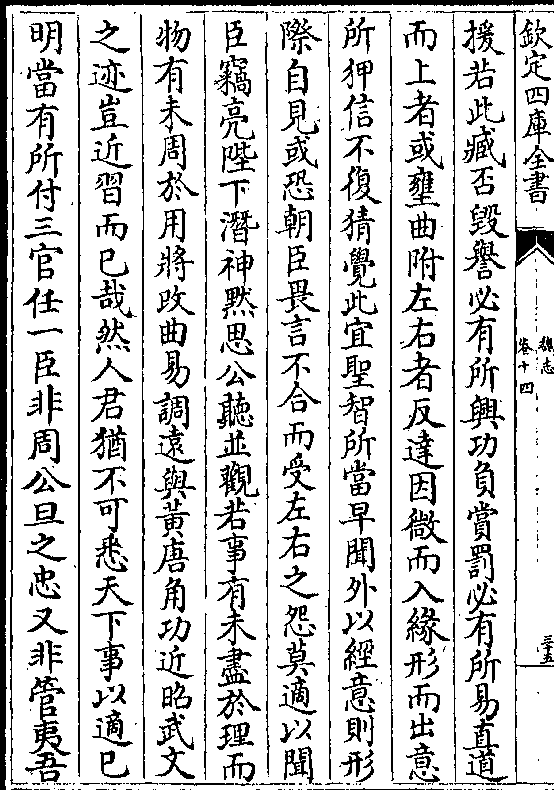 欽定四庫全書
魏志
卷十四
三十五
援若此臧否毀譽必有所興功負賞罰必有所易直道
而上者或壅曲附左右者反達因微而入緣形而出意
所狎信不復猜覺此宜聖智所當早聞外以經意則形
際自見或恐朝臣畏言不合而受左右之怨莫適以聞
臣竊亮陛下潛神黙思公聽並觀若事有未盡於理而
物有未周於用將改曲易調遠與黃唐角功近昭武文
之迹豈近習而已哉然人君猶不可悉天下事以適已
明當有所付三官任一臣非周公旦之忠又非管夷吾